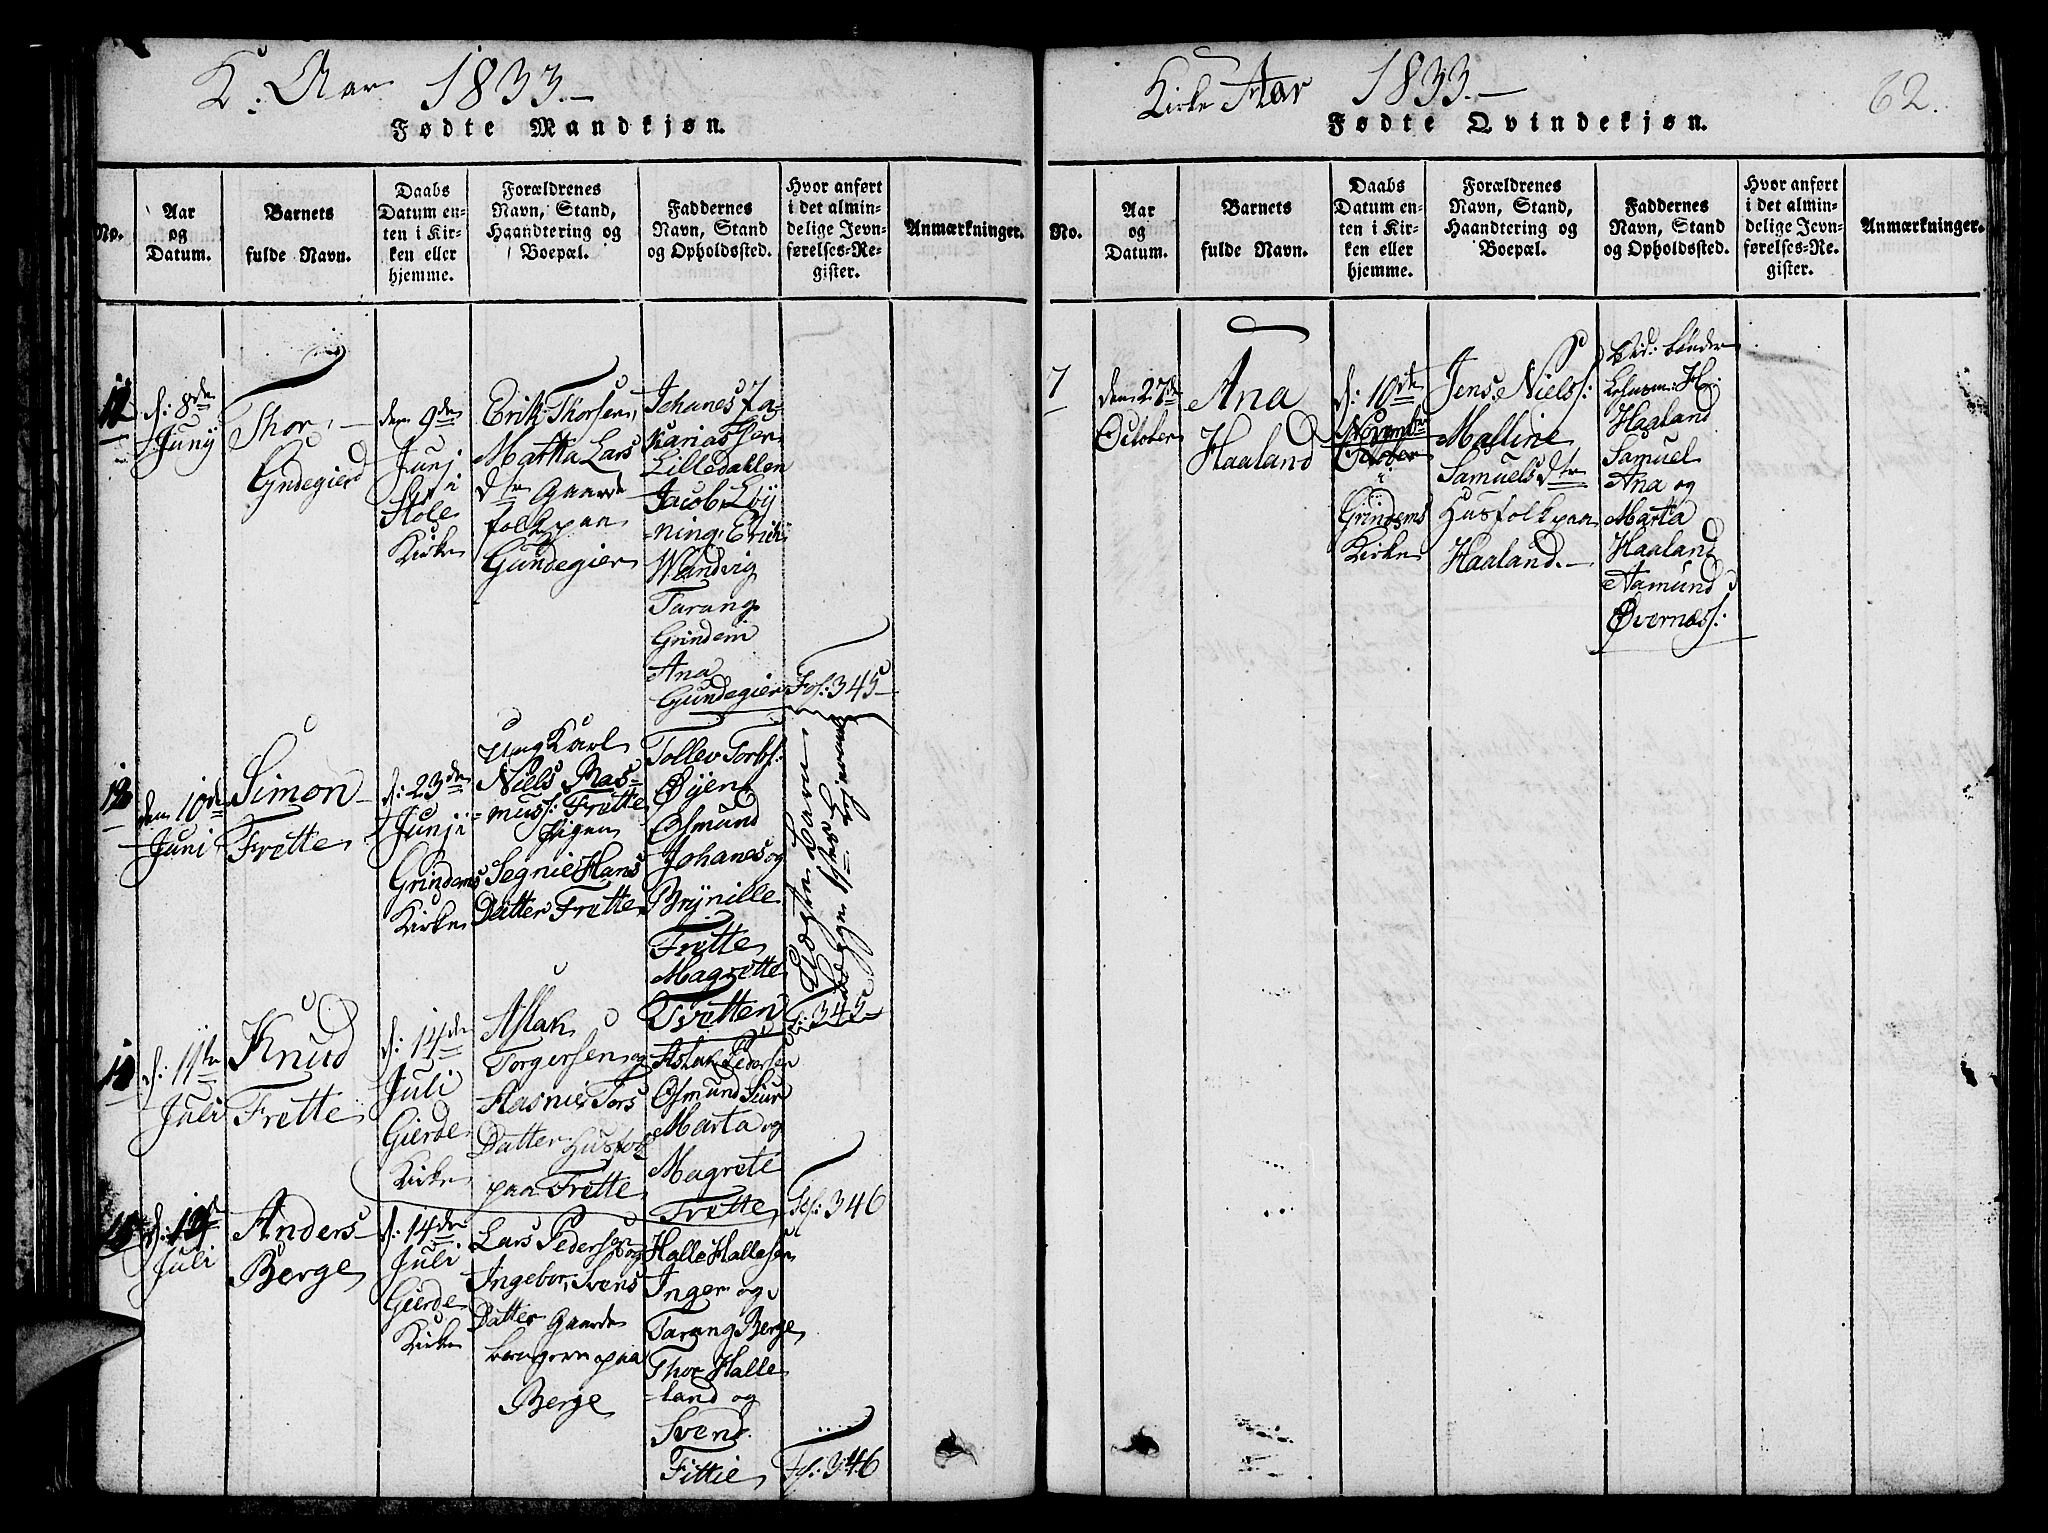 K: Aar 1833.—
Fødte Mandkjøn.
No.
Aar
og
Datum.
Barnets
fulde Navn.
Daabs
Datum en-
ten i Kir-
ken eller
hjemme.
Forældrenes
Navn, Stand,
Haandtering og
Boepæl.
Faddernes
Navn, Stand
og Opholdssted.
Hvor anført
i det almin-
delige Jevn-
førelses-Re-
gister.
Anmærkninger.
12
d: 8de
Junÿ
Thor, —
Gndegierd
den 9de
Junj
i
Stole
Kirke
Erik Thorsen,
Martha Lars
Dtr Gaarde
folk paa
Gundegier
Johanes Za-
karias Ser
Lilledahlen
Jacob Løÿ
-ning, Erik
Wandvig
Tarang
Grindem
Ana
Gundegier
Fol: 345—
13
den 10de
Juni
Simon
Frette
d: 23de
Junji
Grindems
Kirke
Ung Karl
Niels Ras-
muss: Frette
Pigen
Segnie Hans
Datter Frette
Tollev Torbs:
Øÿen
Osmund
Johanes og
Brÿnille
Frette
Magrette
Tvetten
Uægte Barn
Begges 1ste Leiermaal
F: 345—
14
d: 11te
Juli
Knud
Frette
d: 14de
Juli
Gierde
Kirke
Aslak
Torgersen og
Aasnie Tors
Datter Husfolk
paa Frette
Aslak Pedersen
Osmund Siur
Marta og
Magrete
Frette
Fol: 346
15
d: 12te
Juli
Anders
Berge
d: 14de
Juli
Gierde
Kirke
Lars Pederson og
Ingebor, Svens
Datter Gaarde
brugere paa
Berge
Halle Hallesen
Inger og
Tarang Berge
Thor Halle
-land og
Svend
Fittie
Fol: 346
Kirke Aar 1833.—
62.
Fødte Qvindekjøn.
No.
Aar
og
Datum.
Barnets
fulde Navn.
Daabs
Datum en-
ten i Kir-
ken eller
hjemme.
Forældrenes
Navn, Stand,
Haandtering og
Boepæl.
Faddernes
Navn, Stand
og Opholdssted.
Hvor anført
i det almin-
delige Jevn-
førelses-Re-
gister.
Anmærkninger.
7
den 27de
October
Ana
Haaland
d: 10de
November
October
i
Grindems
Kirke
Jens Niels:
Malline
Samuels Dtr
Husfolk paa
Haaland.—
Bønder
Lehnsm: H:
Haaland
Samuel
Ana og
Marta
Haaland
Aamund
Øvernæss: